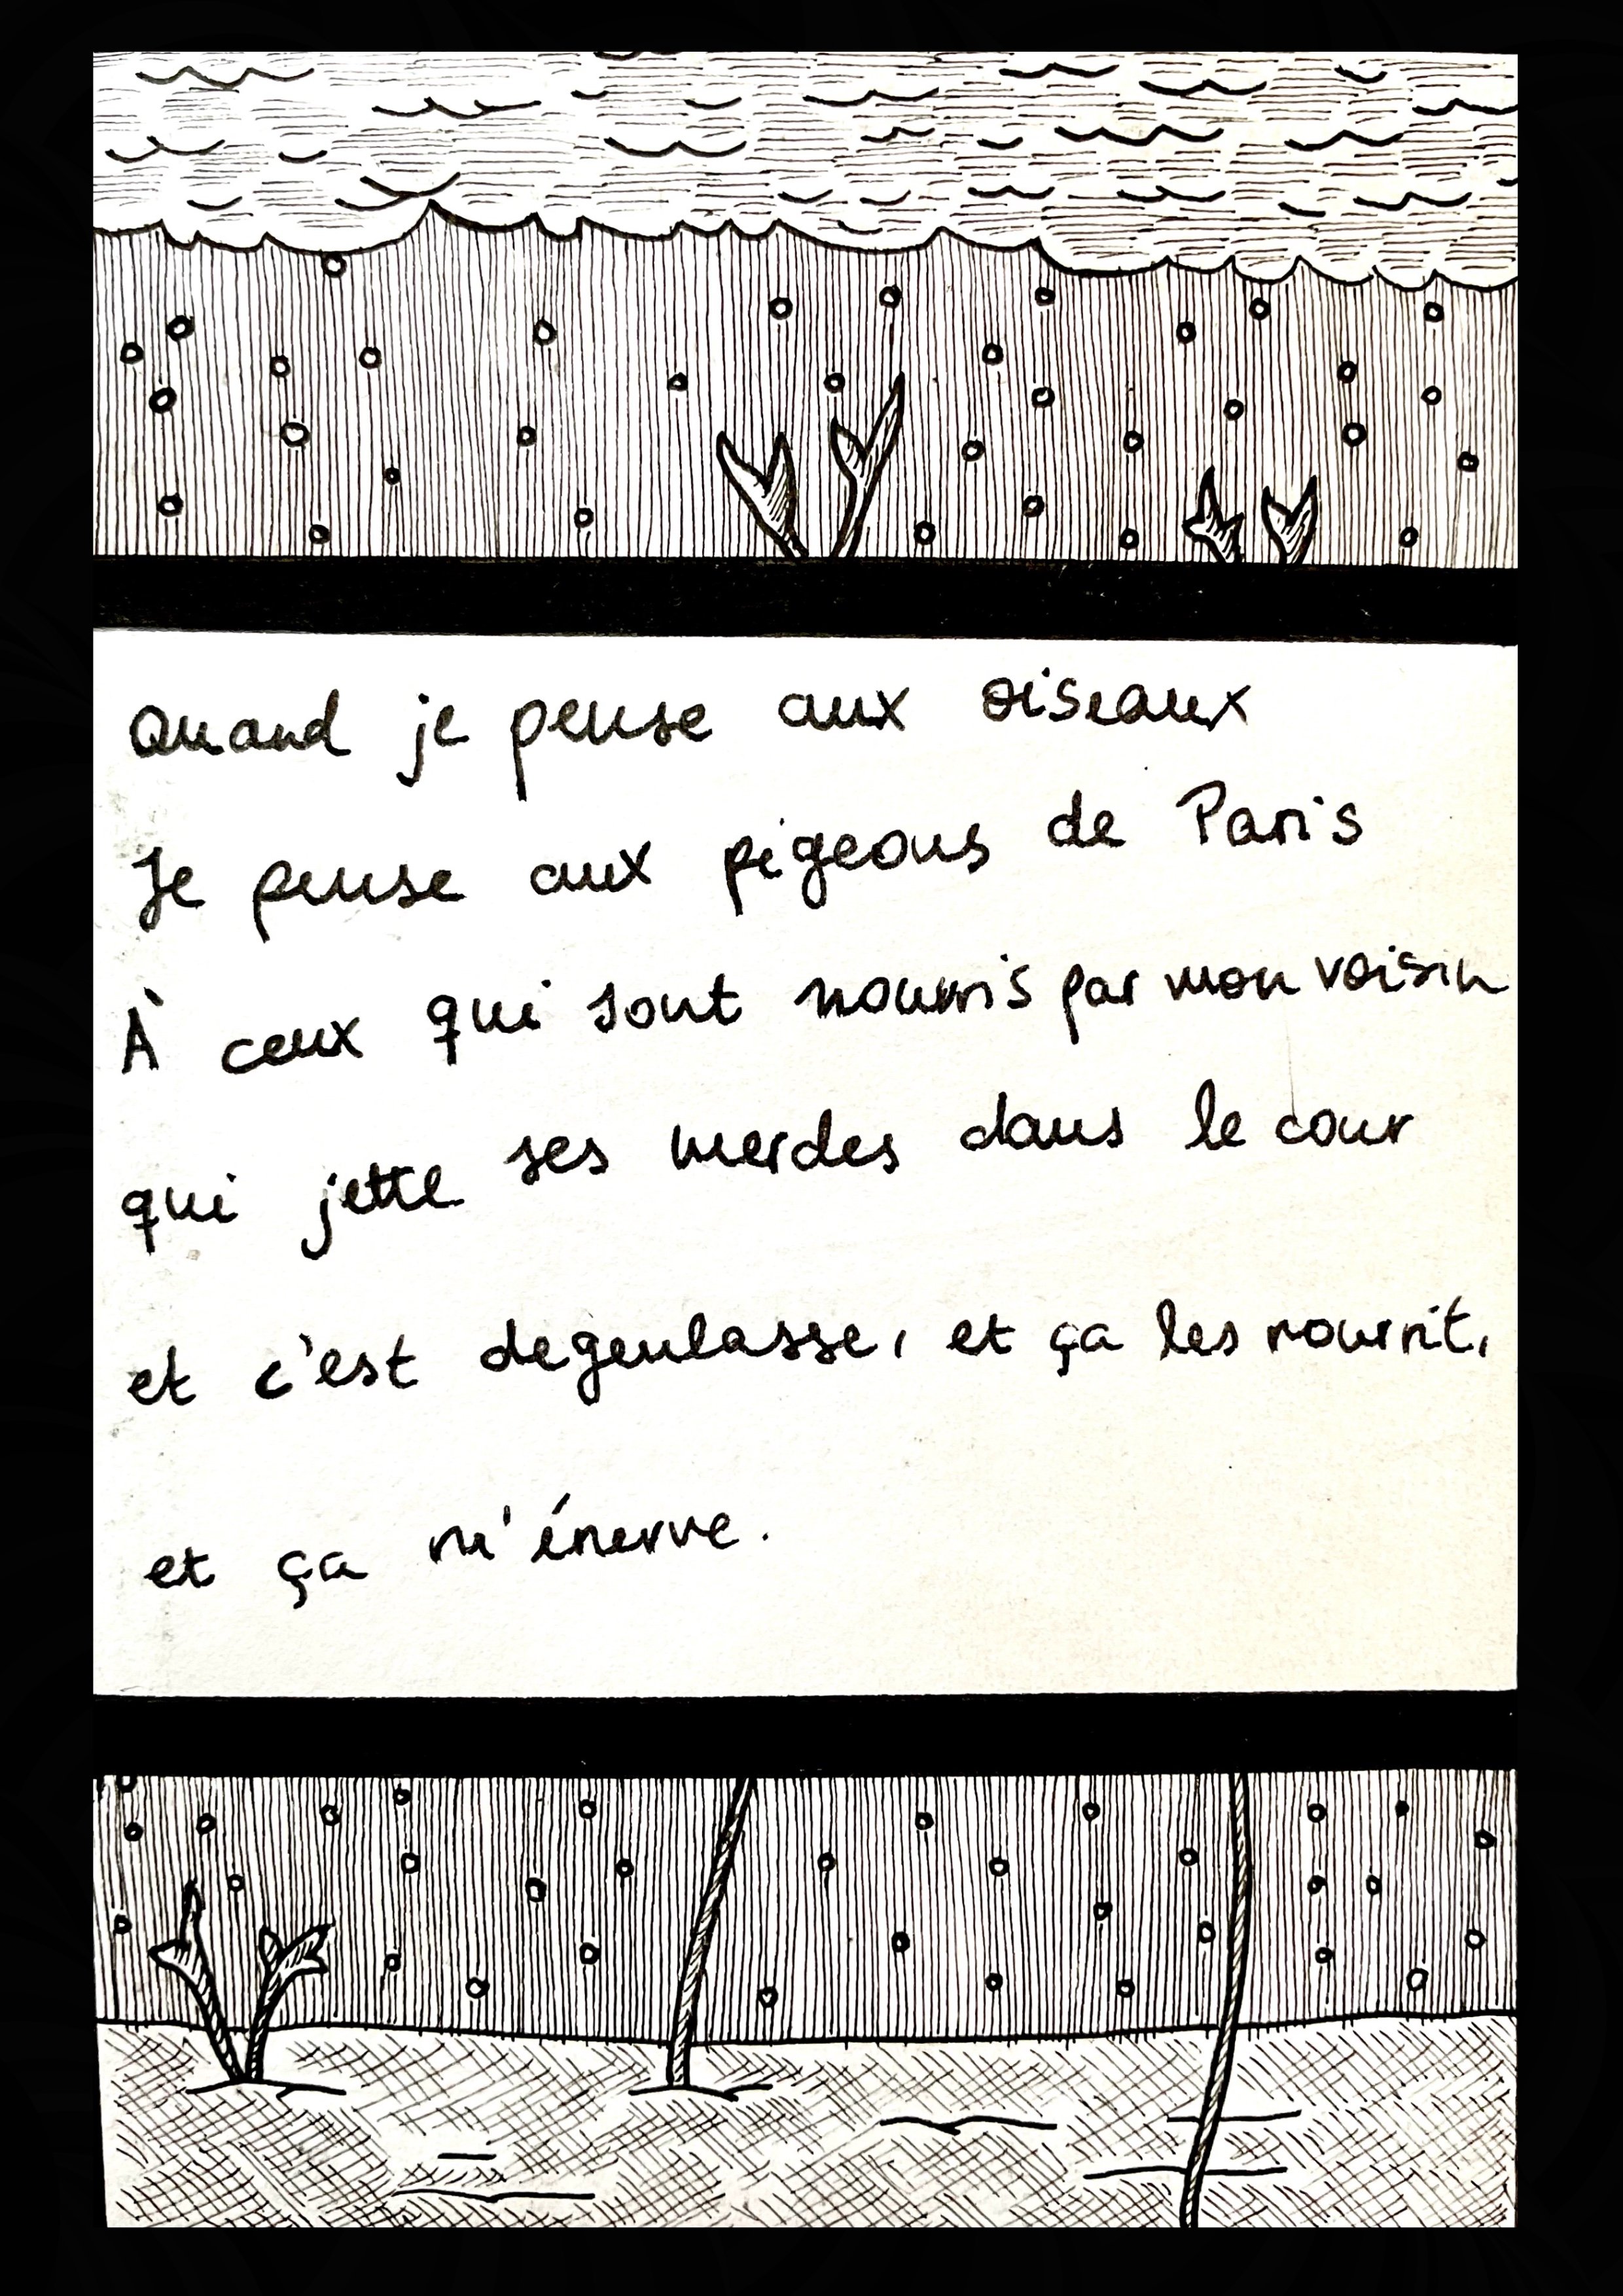 Quand je pense aux oiseaux
Je pense aux pigeons de Paris
À ceux qui sont nourris par mon voisin
qui jette ses merdes dans le cour
et c'est degeulasse, et ça les nourrit,
et ça m'énerve.